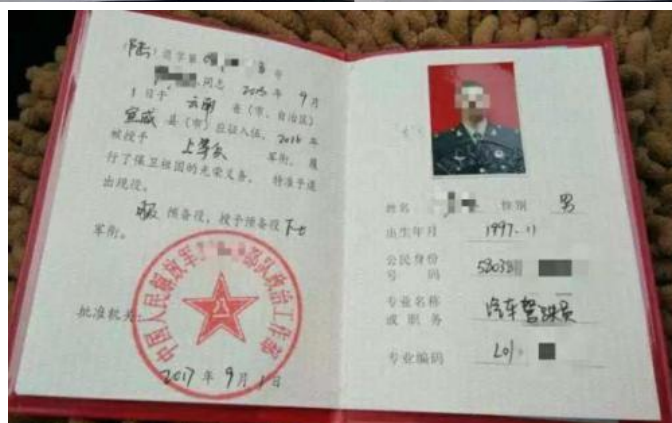 (陆)退字第 号
同志 2015 年 9 月
1 日于 云南 省(市、自治区)
宣威 县(市)应征入伍。2016 年
被授予 上等兵 军衔。履
行了保卫祖国的光荣义务。特准予退
出现役。
服 预备役,授予预备役 下士
军衔。
中国人民解放军 部队政治工作部
八一
批准机关:
2017 年 9 月 1 日
姓名 性别 男
出生年月 1997.11
公民身份
号 码 53038
专业名称
或 职 务 汽车驾驶员
专业编码